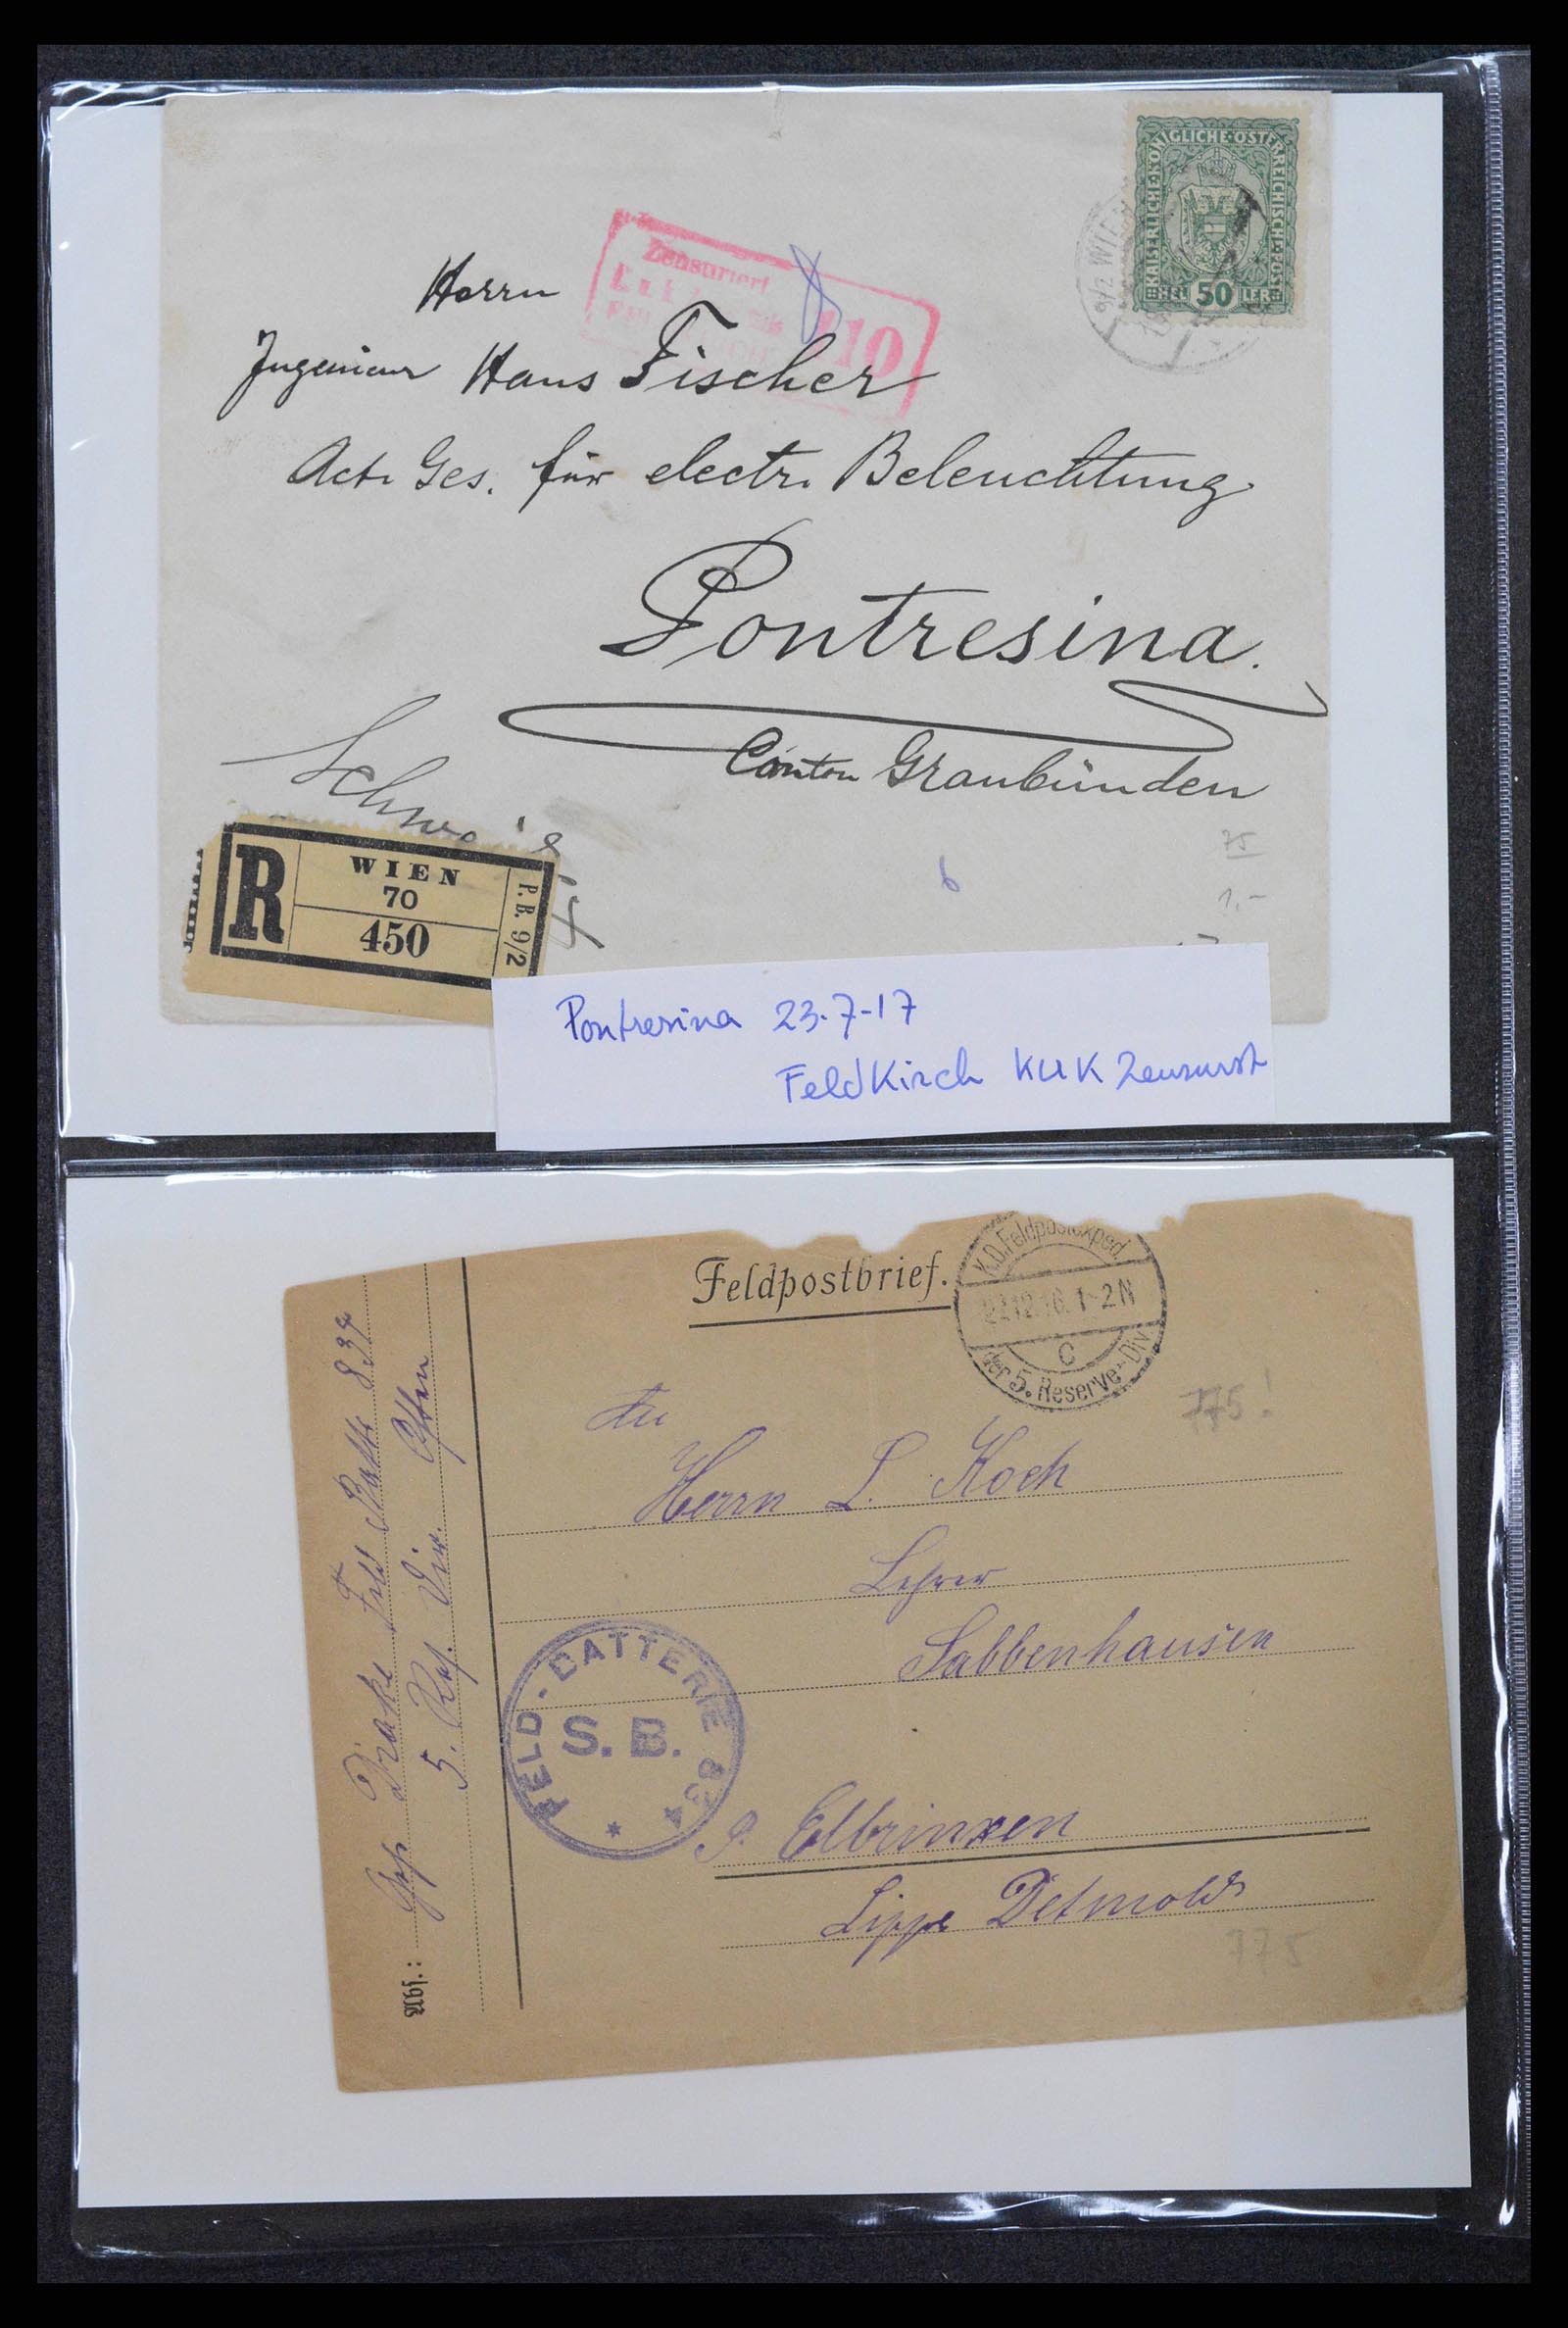 KAISERLICHE·KÖNIGLICHE·ÖSTERREICHISCHE·POST
HEL 50 LER
9/2 WIEN
Zensuriert
110
Herrn
Ingenieur Hans Fischer
Act. Ges. für electr. Beleuchtung
Pontresina.
Canton Graubünden
Schweiz
R
WIEN
70
450
P.B. 9/2
6
75
1,-
Pontresina 23.7-17
Feldkirch KUK Zensurst
Feldpostbrief.
K.D. Feldpostexped.
12.16. 1-2N
c
der 5. Reserve-Div.
775!
An
Herrn L. Koch
Lehrer
Sabbenhausen
P. Elbrinxen
Lippe Detmold
775
FELD-BATTERIE 834
S. B.
*
Abs.: Drake Feld Battr 834
5. Res. Div. Osten